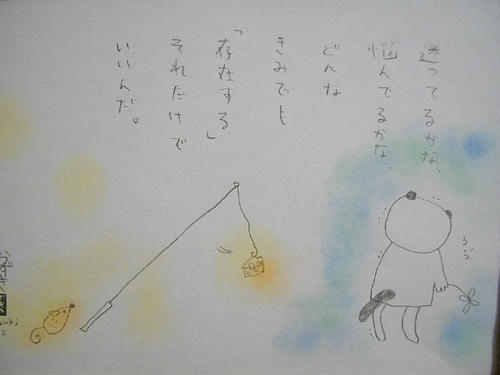 迷ってるかな、
悩んでるかな、
どんな
きみでも
「存在する」
それだけで
いいんだ。